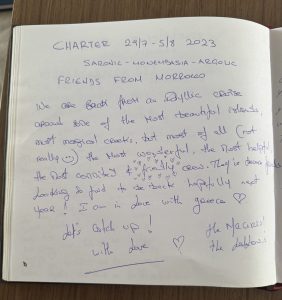 CHARTER 29/7 - 5/8 2023
SARONIC - MONEMBASIA - ARGOLIC
FRIENDS FROM MOROCCO
We are back from an idyllic cruise
around some of the most beautiful islands,
most magical creeks, but most of all (not
really 🙂) the most wonderful, the most helpful
the most & friendly crew. They've been
Looking so fwd to be back hopefully next
year! I am in love with greece ♡
Let's catch up!
with love ♡
the
the